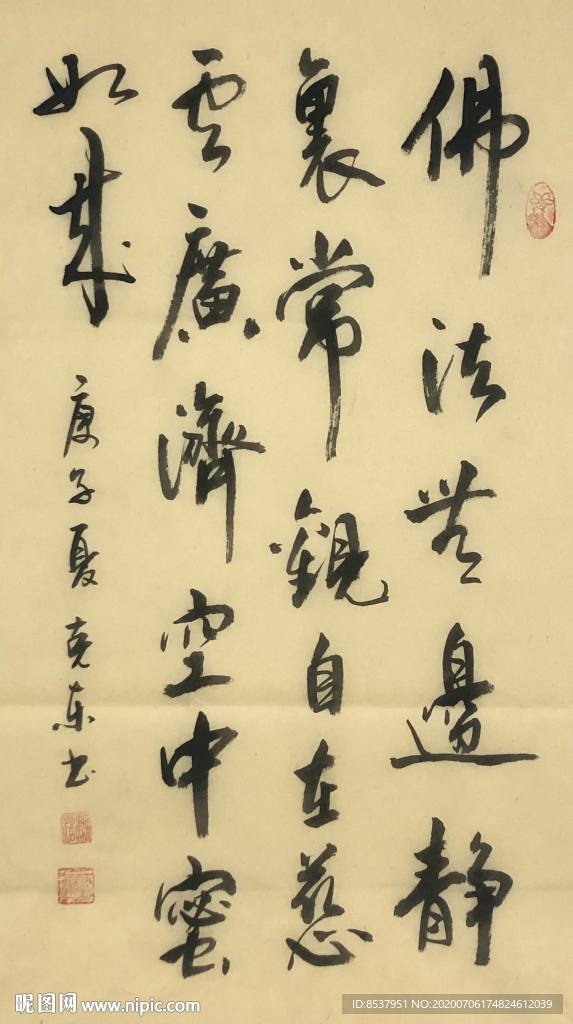 佛法無邊靜
裏常觀自在慈
雲廣濟空中蜜
如來
庚子夏克東書
昵图网 www.nipic.com
ID:8537951 NO:20200706174824612039